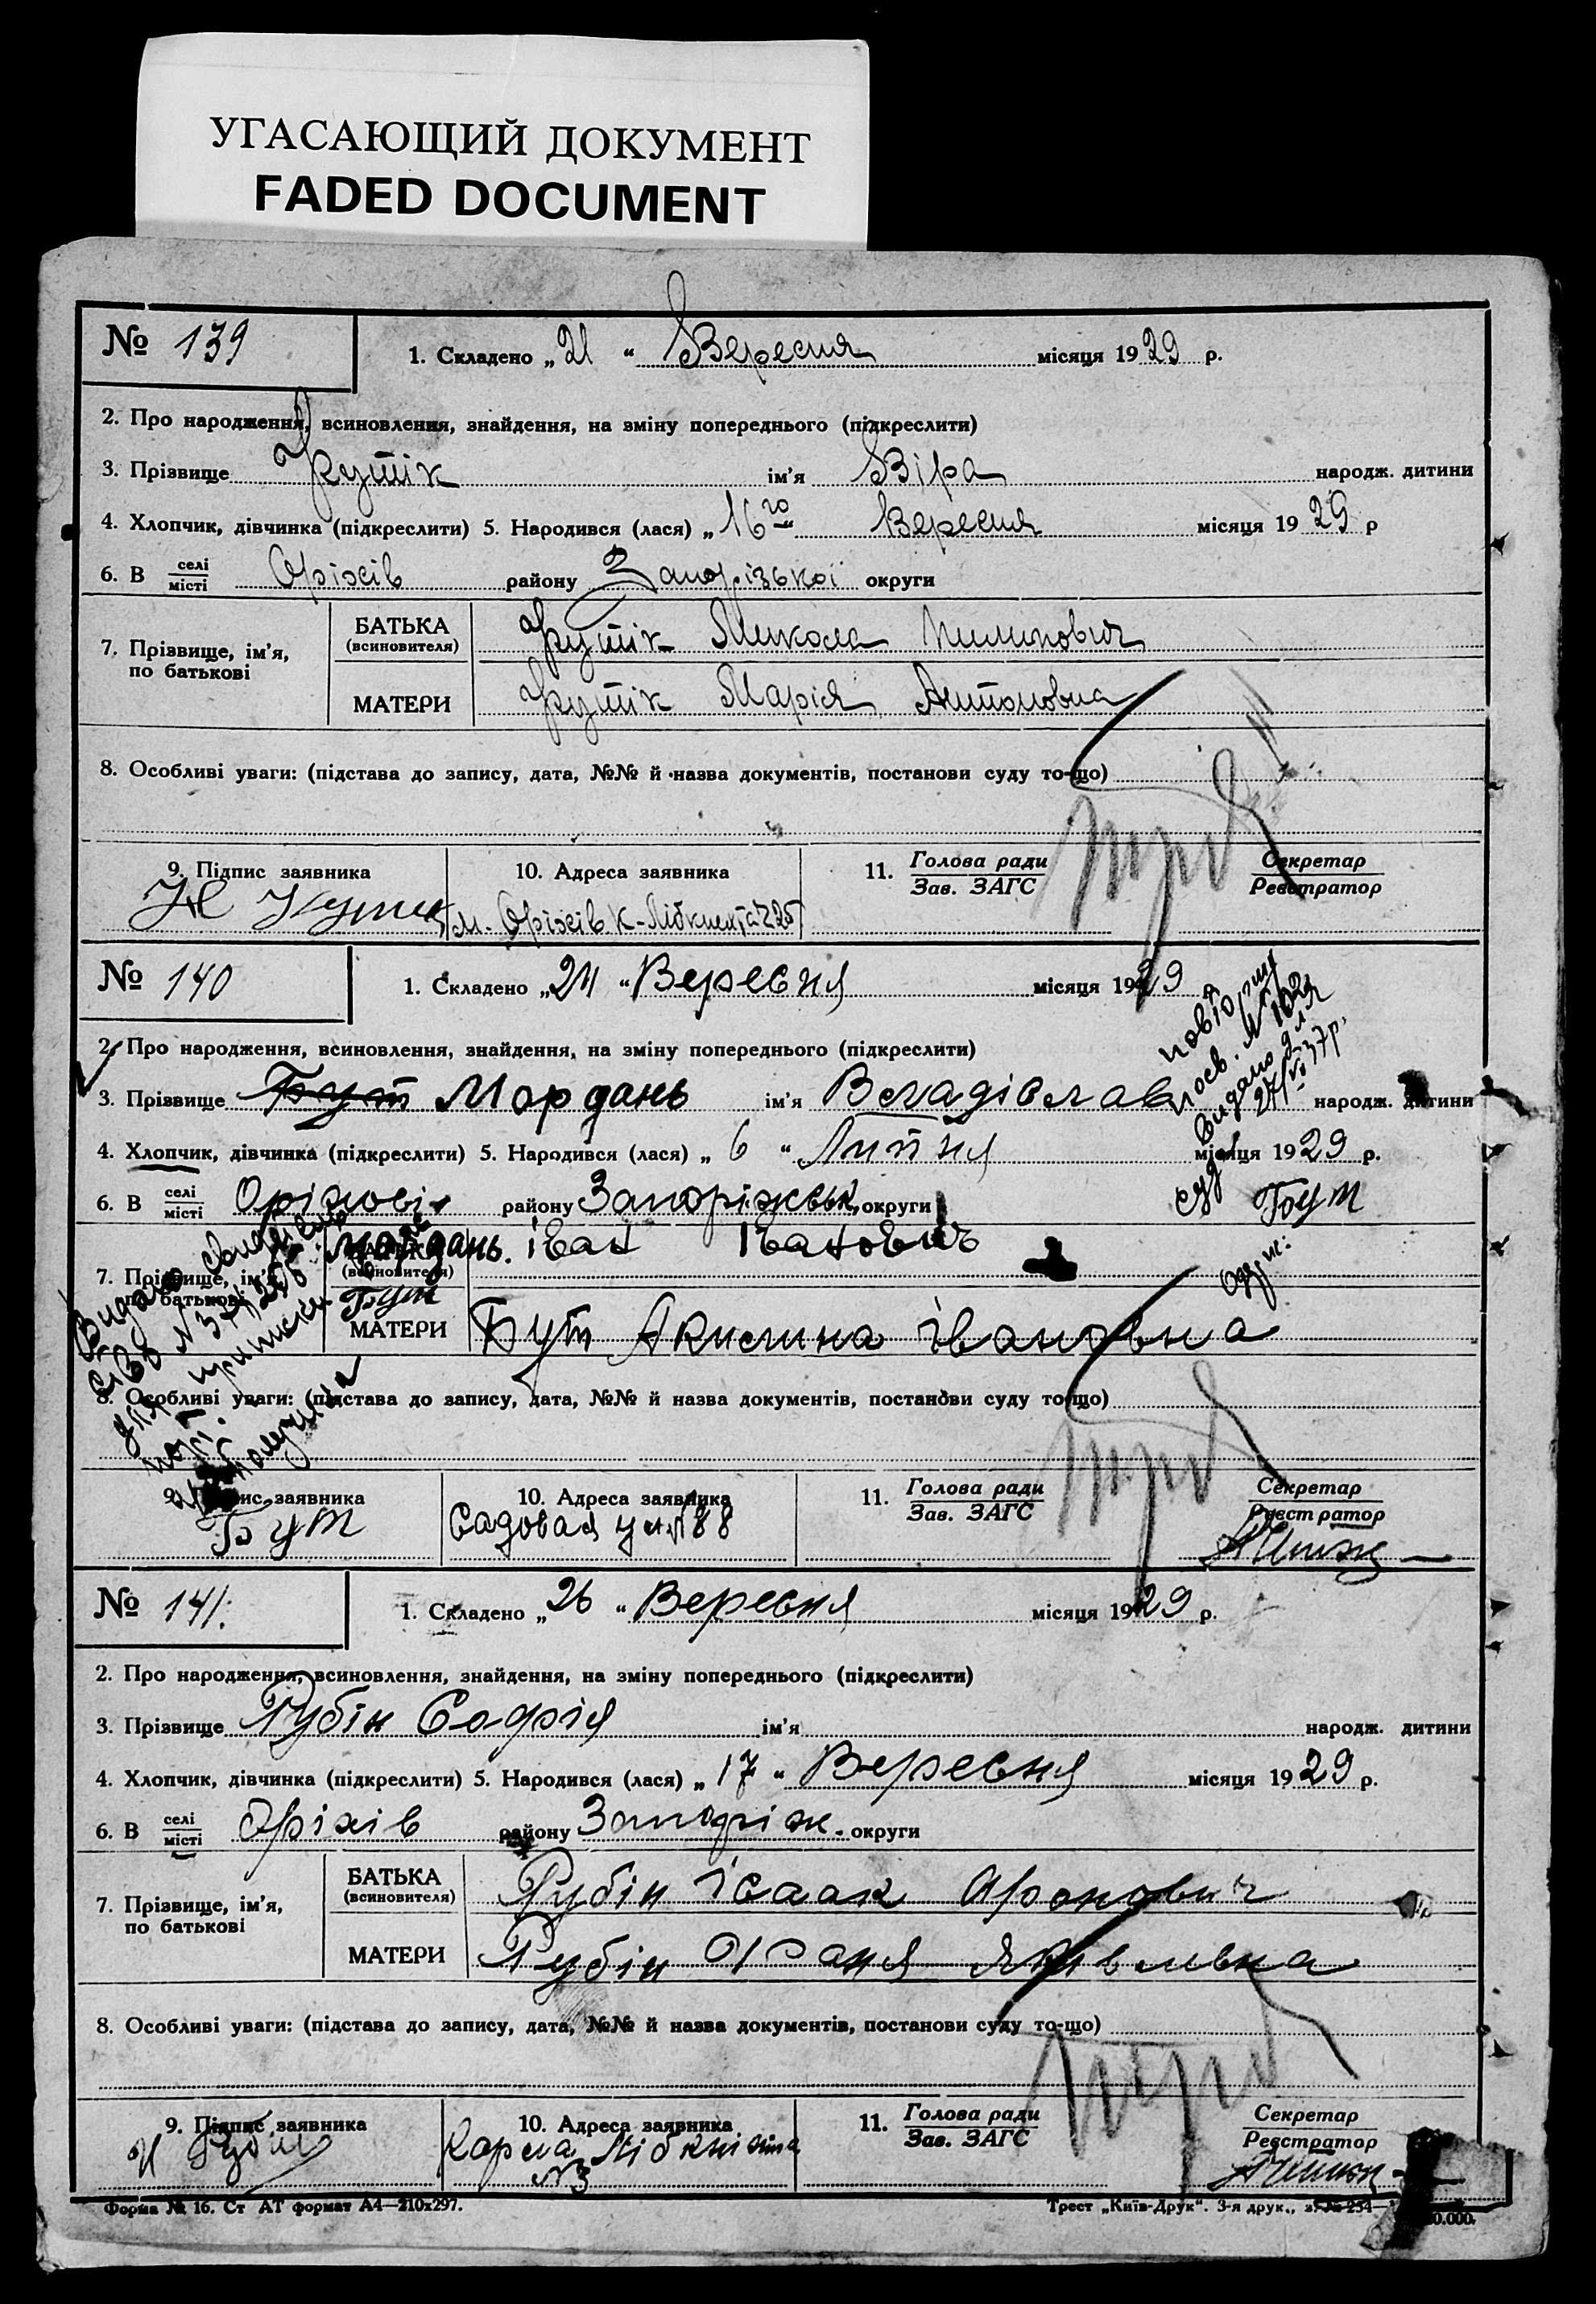 УГАСАЮЩИЙ ДОКУМЕНТ
FADED DOCUMENT
№ 139
1. Складено „21 “ Вересня місяця 1929 р.
2. Про народження, всиновлення, знайдення, на зміну попереднього (підкреслити)
3. Прізвище ім’я Віра народж. дитини
4. Хлопчик, дівчинка (підкреслити) 5. Народився (лася) „16го“ Вересня місяця 1929 р
6. В селі/місті Оріхів району Запорізької округи
7. Прізвище, ім’я, по батькові
БАТЬКА (всиновителя) Микола Пилипович
МАТЕРИ Марія Антоновна
8. Особливі уваги: (підстава до запису, дата, №№ й назва документів, постанови суду то-що)
9. Підпис заявника
10. Адреса заявника
м. Оріхів К-Лібкнехта 225
11. Голова ради/Зав. ЗАГС
Секретар/Реєстратор
№ 140
1. Складено „24 “ Вересня місяця 1929
2. Про народження, всиновлення, знайдення, на зміну попереднього (підкреслити)
3. Прізвище Бут Мордань ім’я Владіслав народж. дитини
4. Хлопчик, дівчинка (підкреслити) 5. Народився (лася) „ 6 “ Липня місяця 1929 р.
6. В селі/місті Оріхові району Запоріжськ. округи
Бут
7. Прізвище, ім’я, по батькові
БАТЬКА (всиновителя) Мордань Іван Іванович
Бут
МАТЕРИ Бут Акилина Івановна
8. Особливі уваги: (підстава до запису, дата, №№ й назва документів, постанови суду то-що)
9. Підпис заявника
Бут
10. Адреса заявника
Садовая ул №88
11. Голова ради/Зав. ЗАГС
Секретар/Реєстратор
№ 141.
1. Складено „26 “ Вересня місяця 1929 р.
2. Про народження, всиновлення, знайдення, на зміну попереднього (підкреслити)
3. Прізвище Рубін Софія ім’я народж. дитини
4. Хлопчик, дівчинка (підкреслити) 5. Народився (лася) „ 17 “ Вересня місяця 1929 р.
6. В селі/місті Оріхів району Запоріж. округи
7. Прізвище, ім’я, по батькові
БАТЬКА (всиновителя) Рубін Ісаак Аронович
МАТЕРИ Рубін Яковлевна
8. Особливі уваги: (підстава до запису, дата, №№ й назва документів, постанови суду то-що)
9. Підпис заявника
10. Адреса заявника
Карла Лібкнехта
№3
11. Голова ради/Зав. ЗАГС
Секретар/Реєстратор
Форма № 16. Ст АТ формат А4—210х297.
Трест „Київ-Друк“. 3-я друк.,